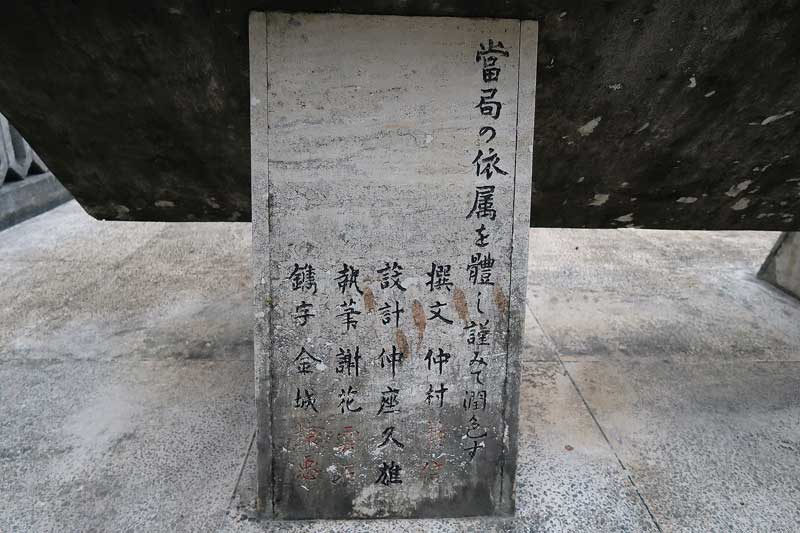 當局の依属を體し謹みて潤色す
撰文 仲村
設計 仲座久雄
執筆 謝花
鐫字 金城